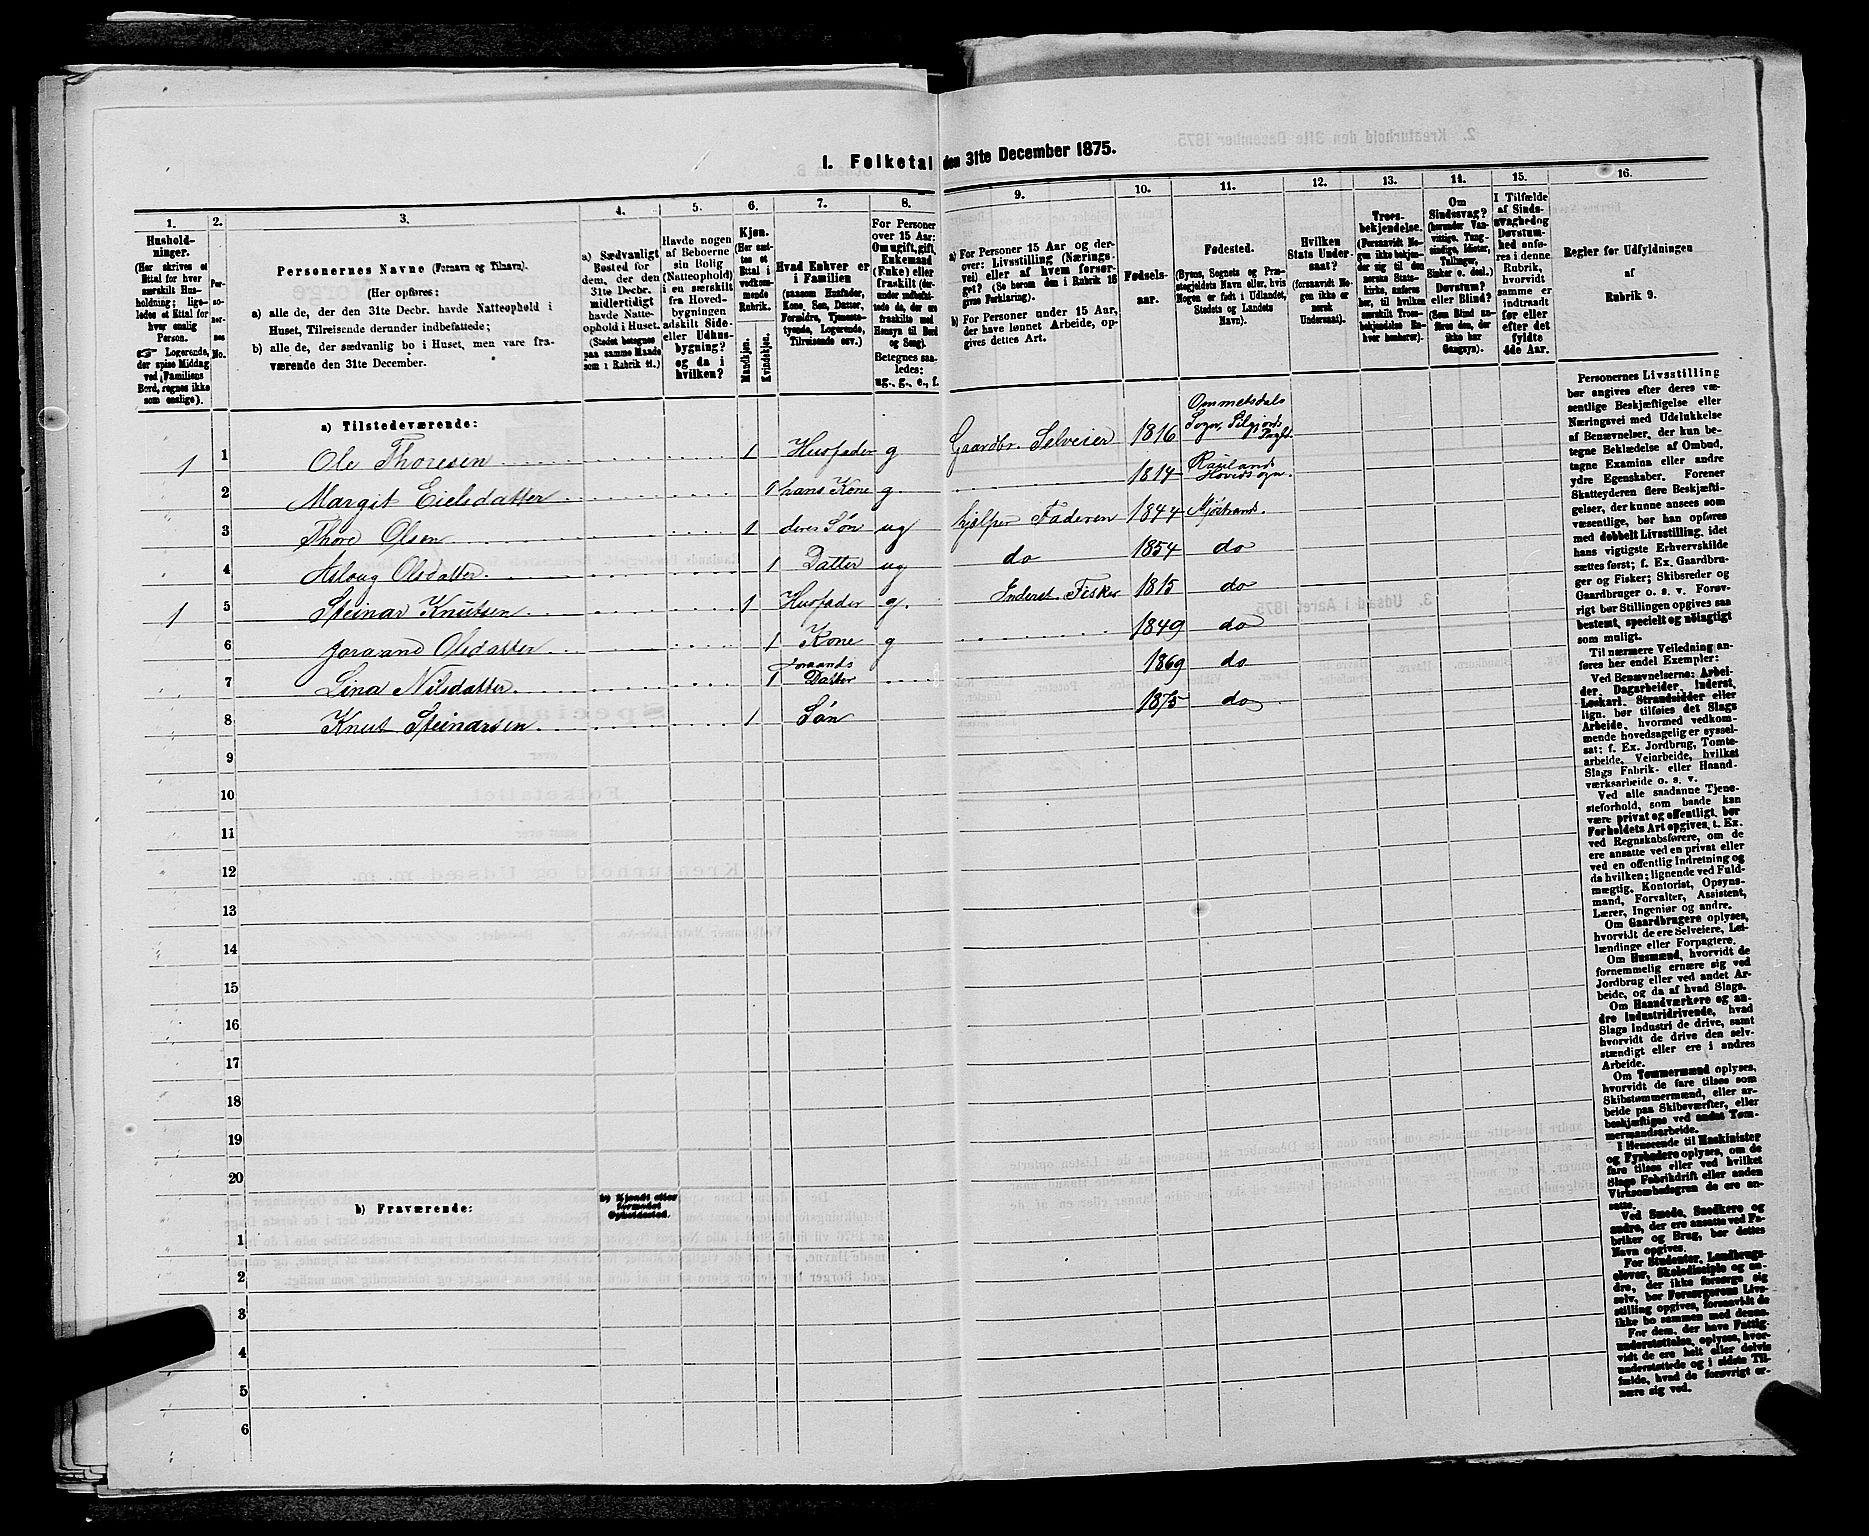 1. Folketal den 31te December 1875.
1. 2. 3. 4. 5. 6. 7. 8. 9. 10. 11. 12. 13. 14. 15. 16.
Hushold-
ninger.
(Her skrives et
Ettal for hver
særskilt Hus-
holdning; lige-
ledes et Ettal for
hver enslig
Person.
☞ Logerende,
der spise Middag
ved Familiens
Bord, regnes ikke
som enslige).
Per-
so-
ner-
nes
No.
Personernes Navne (Fornavn og Tilnavn).
(Her opføres:
a) alle de, der den 31te Decbr. havde Natteophold i
Huset, Tilreisende derunder indbefattede;
b) alle de, der sædvanlig bo i Huset, men vare fra-
værende den 31te December.
a) Sædvanligt
Bosted for
dem, der den
31te Decbr.
midlertidigt
havde Natte-
ophold i Huset.
(Stedet betegnes
paa samme Maade
som i Rubrik 11.)
Havde nogen
af Beboerne
sin Bolig
(Natteophold)
i en særskilt
fra Hoved-
bygningen
adskilt Side-
eller Udhus-
bygning?
og da i
hvilken?
Kjøn.
(Her sæt-
tes et
Ettal i
vedkom-
mende
Rubrik.
Mandkjøn.
Kvindekjøn.
Hvad Enhver er
i Familien
(saasom Husfader,
Kone, Søn, Datter,
Forældre, Tjeneste-
tyende, Logerende,
Tilreisende osv.)
For Personer
over 15 Aar:
Om ugift, gift,
Enkemand
(Enke) eller
fraskilt (der-
under indbefat-
tede de, der ere
fraskilte med
Hensyn til Bord
og Seng).
Betegnes saa-
ledes:
ug., g., e., f.
a) For Personer 15 Aar og der-
over: Livsstilling (Nærings-
vei) eller af hvem forsør-
get? (Se herom den i Rubrik 16
givne Forklaring).
b) For Personer under 15 Aar,
der have lønnet Arbeide, op-
gives dettes Art.
Fødsels-
aar.
Fødested.
(Byens, Sognets og Præ-
stegjeldets Navn eller, hvis
Nogen er født i Udlandet,
Stedets og Landets
Navn).
Hvilken
Stats Under-
saat?
(forsaavidt No-
gen ikke er
norsk
Undersaat).
Troes-
bekjendelse.
(Forsaavidt No-
gen ikke bekjen-
der sig til den
norske Stats-
kirke, anføres
her, til hvilken
særskilt Troes-
bekjendelse En-
hver henhører).
Om
Sindssvag?
(herunder Van-
vittige, Tung-
sindige, Idioter,
Tullinger,
Sinker o. desl.)
Døvstum?
eller Blind?
(Som Blind an-
føres den, der
ikke har
Gangsyn).
I Tilfælde
af Sinds-
svaghed og
Døvstum-
hed anfø-
res i denne
Rubrik,
hvorvidt
samme er
indtraadt
før eller
efter det
fyldte
4de Aar.
Regler for Udfyldningen
af
Rubrik 9.
a) Tilstedeværende:
1 1 Ole Thoresen 1 Husfader g Gaardbr. Selveier 1816
2 Margit Eielsdatter 1 hans Kone g 1814 Rauland Hovedsogn.
3 Thore Olsen 1 deres Søn ug hjælper Faderen 1844 Mjøstrand.
4 Aslaug Olsdatter 1 Datter ug do 1854 do
1 5 Steinar Knutsen 1 Husfader g. Inderst. Fisker 1815 do
6 Joraand Olsdatter 1 Kone g 1849 do
7 Lina Nilsdatter 1 Joraands Datter 1869 do
8 Knut Steinarsen 1 Søn 1875 do
9
10
11
12
13
14
15
16
17
18
19
20
b) Fraværende:
b) Kjendt eller
formodet
Opholdssted.
1
2
3
4
5
6
Personernes Livsstilling
bør angives efter deres væ-
sentlige Beskjæftigelse eller
Næringsvei med Udelukkelse
af Benævnelser, der kun be-
tegne Beklædelse af Ombud,
tagne Examina eller andre
ydre Egenskaber. Forener
Skatteyderen flere Beskjæfti-
gelser, der kunne ansees som
væsentlige, bør han opføres
med dobbelt Livsstilling, idet
hans vigtigste Erhvervskilde
sættes først; f. Ex. Gaardbru-
ger og Fisker; Skibsreder og
Gaardbruger o. s. v. Forøv-
rigt bør Stillingen opgives saa
bestemt, specielt og nøiagtigt
som muligt.
Til nærmere Veiledning an-
føres her endel Exempler:
Ved Benævnelserne: Arbei-
der, Dagarbeider, Inderst,
Løskarl, Strandsidder eller
lign. bør tilføies det Slags
Arbeide, hvormed vedkom-
mende hovedsagelig er syssel-
sat; f. Ex. Jordbrug, Tomte-
arbeide, Veiarbeide, hvilket
Slags Fabrik- eller Haand-
værksarbeide o. s. v.
Ved alle saadanne Tjene-
steforhold, som baade kan
være privat og offentligt, bør
Forholdets Art opgives, t. Ex.
ved Regnskabsførere, om de
ere ansatte ved en privat eller
ved en offentlig Indretning og
da hvilken; lignende ved Fuld-
mægtig, Kontorist, Opsyns-
mand, Forvalter, Assistent,
Lærer, Ingeniør og andre.
Om Gaardbrugere oplyses,
hvorvidt de ere Selveiere, Lei-
lændinge eller Forpagtere.
Om Husmænd, hvorvidt de
fornemmelig ernære sig ved
Jordbrug eller ved andet Ar-
beide, og da af hvad Slags.
Om Haandværkere og an-
dre Industridrivende, hvad
Slags Industri de drive, samt
hvorvidt de drive den selv-
stændigt eller ere i andres
Arbeide.
Om Tømmermænd oplyses,
hvorvidt de fare tilsøs som
Skibstømmermænd, eller ar-
beide paa Skibsværfter, eller
beskjæftiges ved andet Tøm-
mermandsarbeide.
I Henseende til Maskinister
og Fyrbødere oplyses, om de
fare tilsøs eller ved hvilket
Slags Fabrikdrift eller anden
Virksomhedsgren de ere an-
satte.
Ved Smede, Snedkere og
andre, der ere ansatte ved Fa-
briker og Brug, bør dettes
Navn opgives.
For Studenter, Landbrugs-
elever, Skoledisciple og an-
dre, der ikke forsørge sig
selv, bør Forsørgerens Livs-
stilling opgives, forsaavidt de
ikke bo sammen med denne.
For dem, der have Fattig-
understøttelse, oplyses, hvor-
vidt de ere helt eller delvis
understøttede og i sidste Til-
fælde, hvad de forøvrigt er-
nære sig ved.